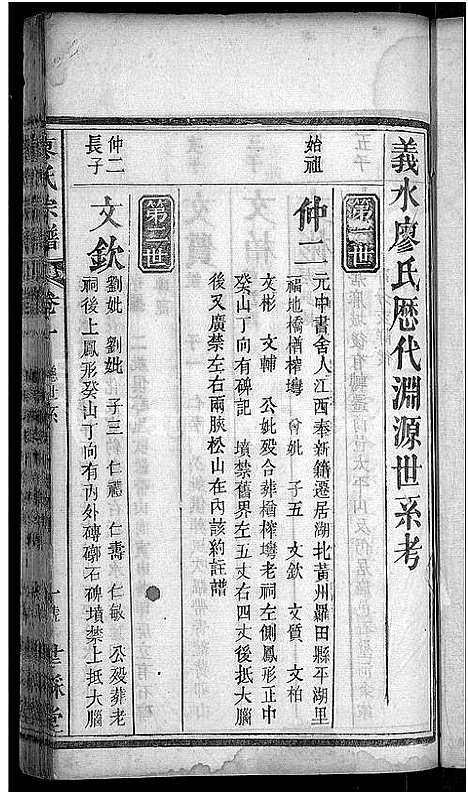 義水廖氏歷代淵源世系考
第一世
始祖
仲二
元中書舍人江西奉新籍遷居湖北黃州羅田縣平湖里
福地橋楢榨塆 曾妣 子五 文欽 文質 文柏
文彬 文輔 公妣殁合葬楢榨塆老祠左側鳳形正中
癸山丁向有碑記 墳禁舊界左五丈右四丈後抵大腦
後又廣禁左右兩腋松山在內該約註譜
第二世
仲二
長子
文欽
劉妣 劉妣 子三 仁禮 仁壽 仁敏 公殁葬老
祠後上鳳形癸山丁向有內外磚槨石碑墳禁上抵大腦
廖氏宗譜 卷一